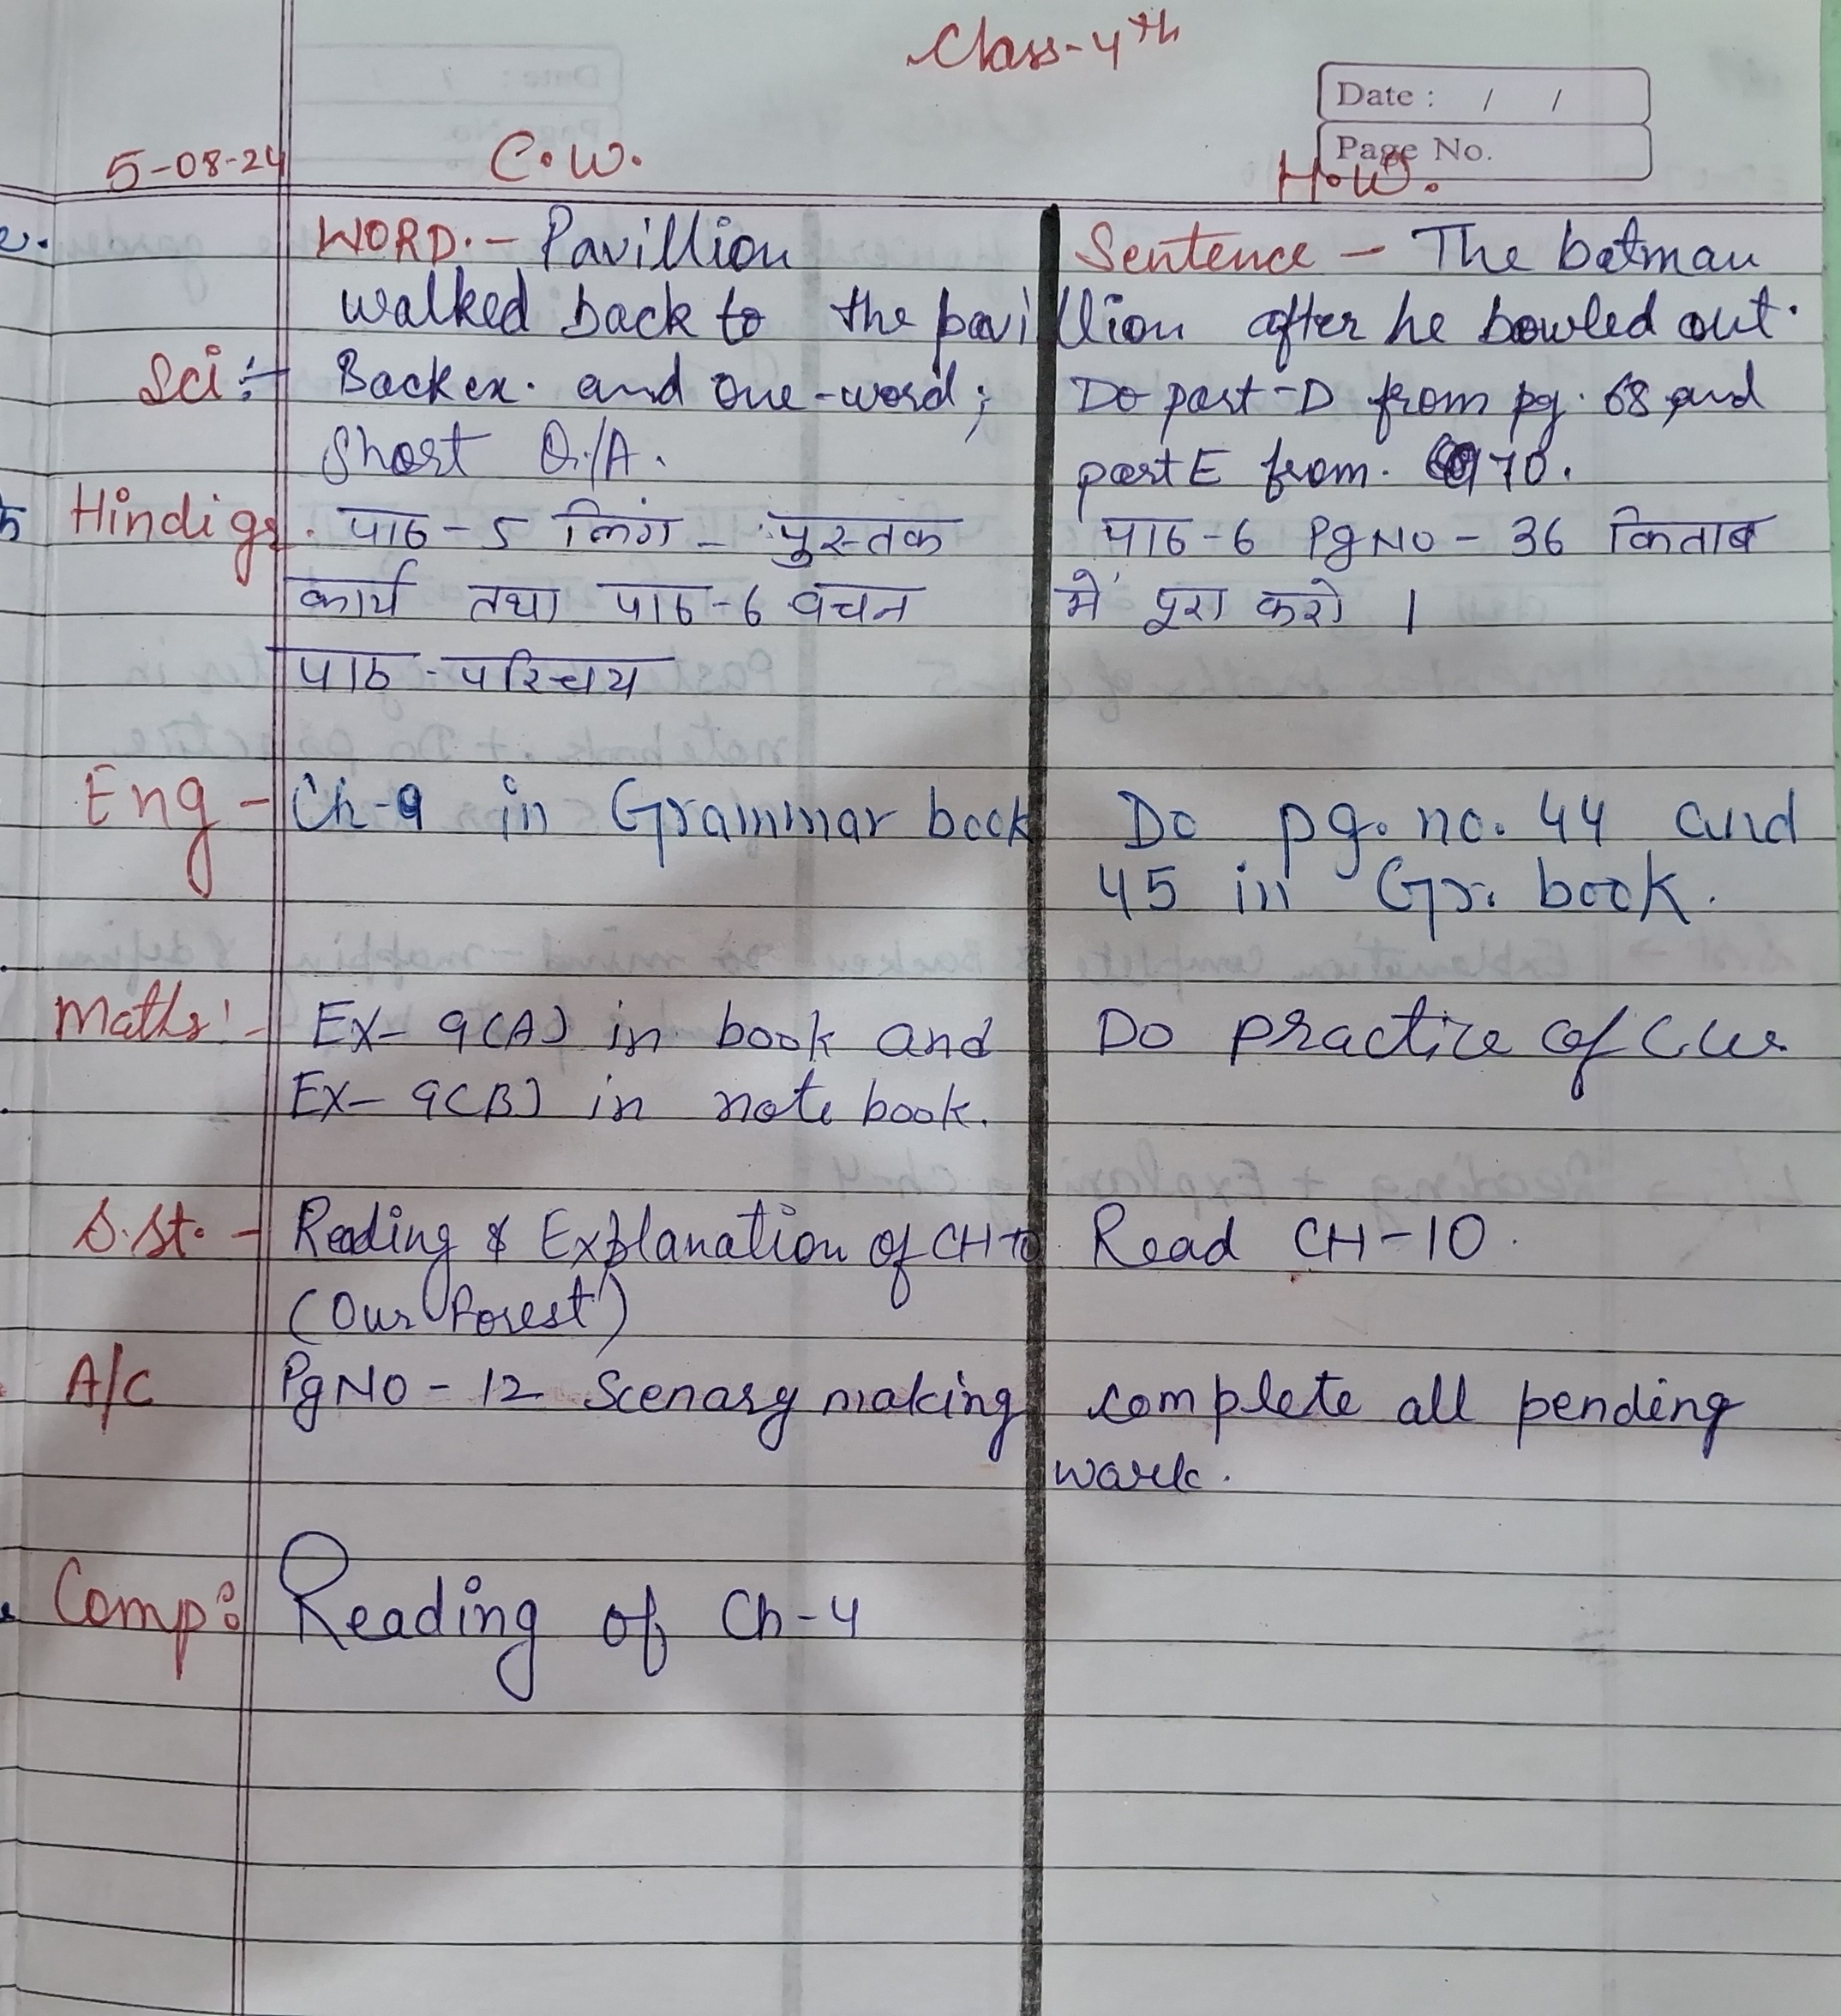 Class-4th
Date : / /
Page No.
5-08-24 C.W. H.W.
WORD.- Pavillion Sentence - The batman
walked back to the pavillion after he bowled out.
Sci :- Back ex. and one-word; Do part-D from pg. 68 and
Short Q./A. part E from. 70.
Hindi gr. पाठ-5 लिंग - पुस्तक पाठ-6 Pg NO - 36 किताब
कार्य तथा पाठ-6 वचन में पूरा करो ।
पाठ-परिचय
Eng - Ch-9 in Grammar book Do pg. no. 44 and
45 in Gr. book.
Maths :- Ex- 9(A) in book and Do practice of C.W.
Ex- 9(B) in note book.
S.St. - Reading & Explanation of CH-10 Read CH-10.
(Our Forest)
A/C Pg NO - 12 Scenary making complete all pending
work.
Comp: Reading of Ch-4